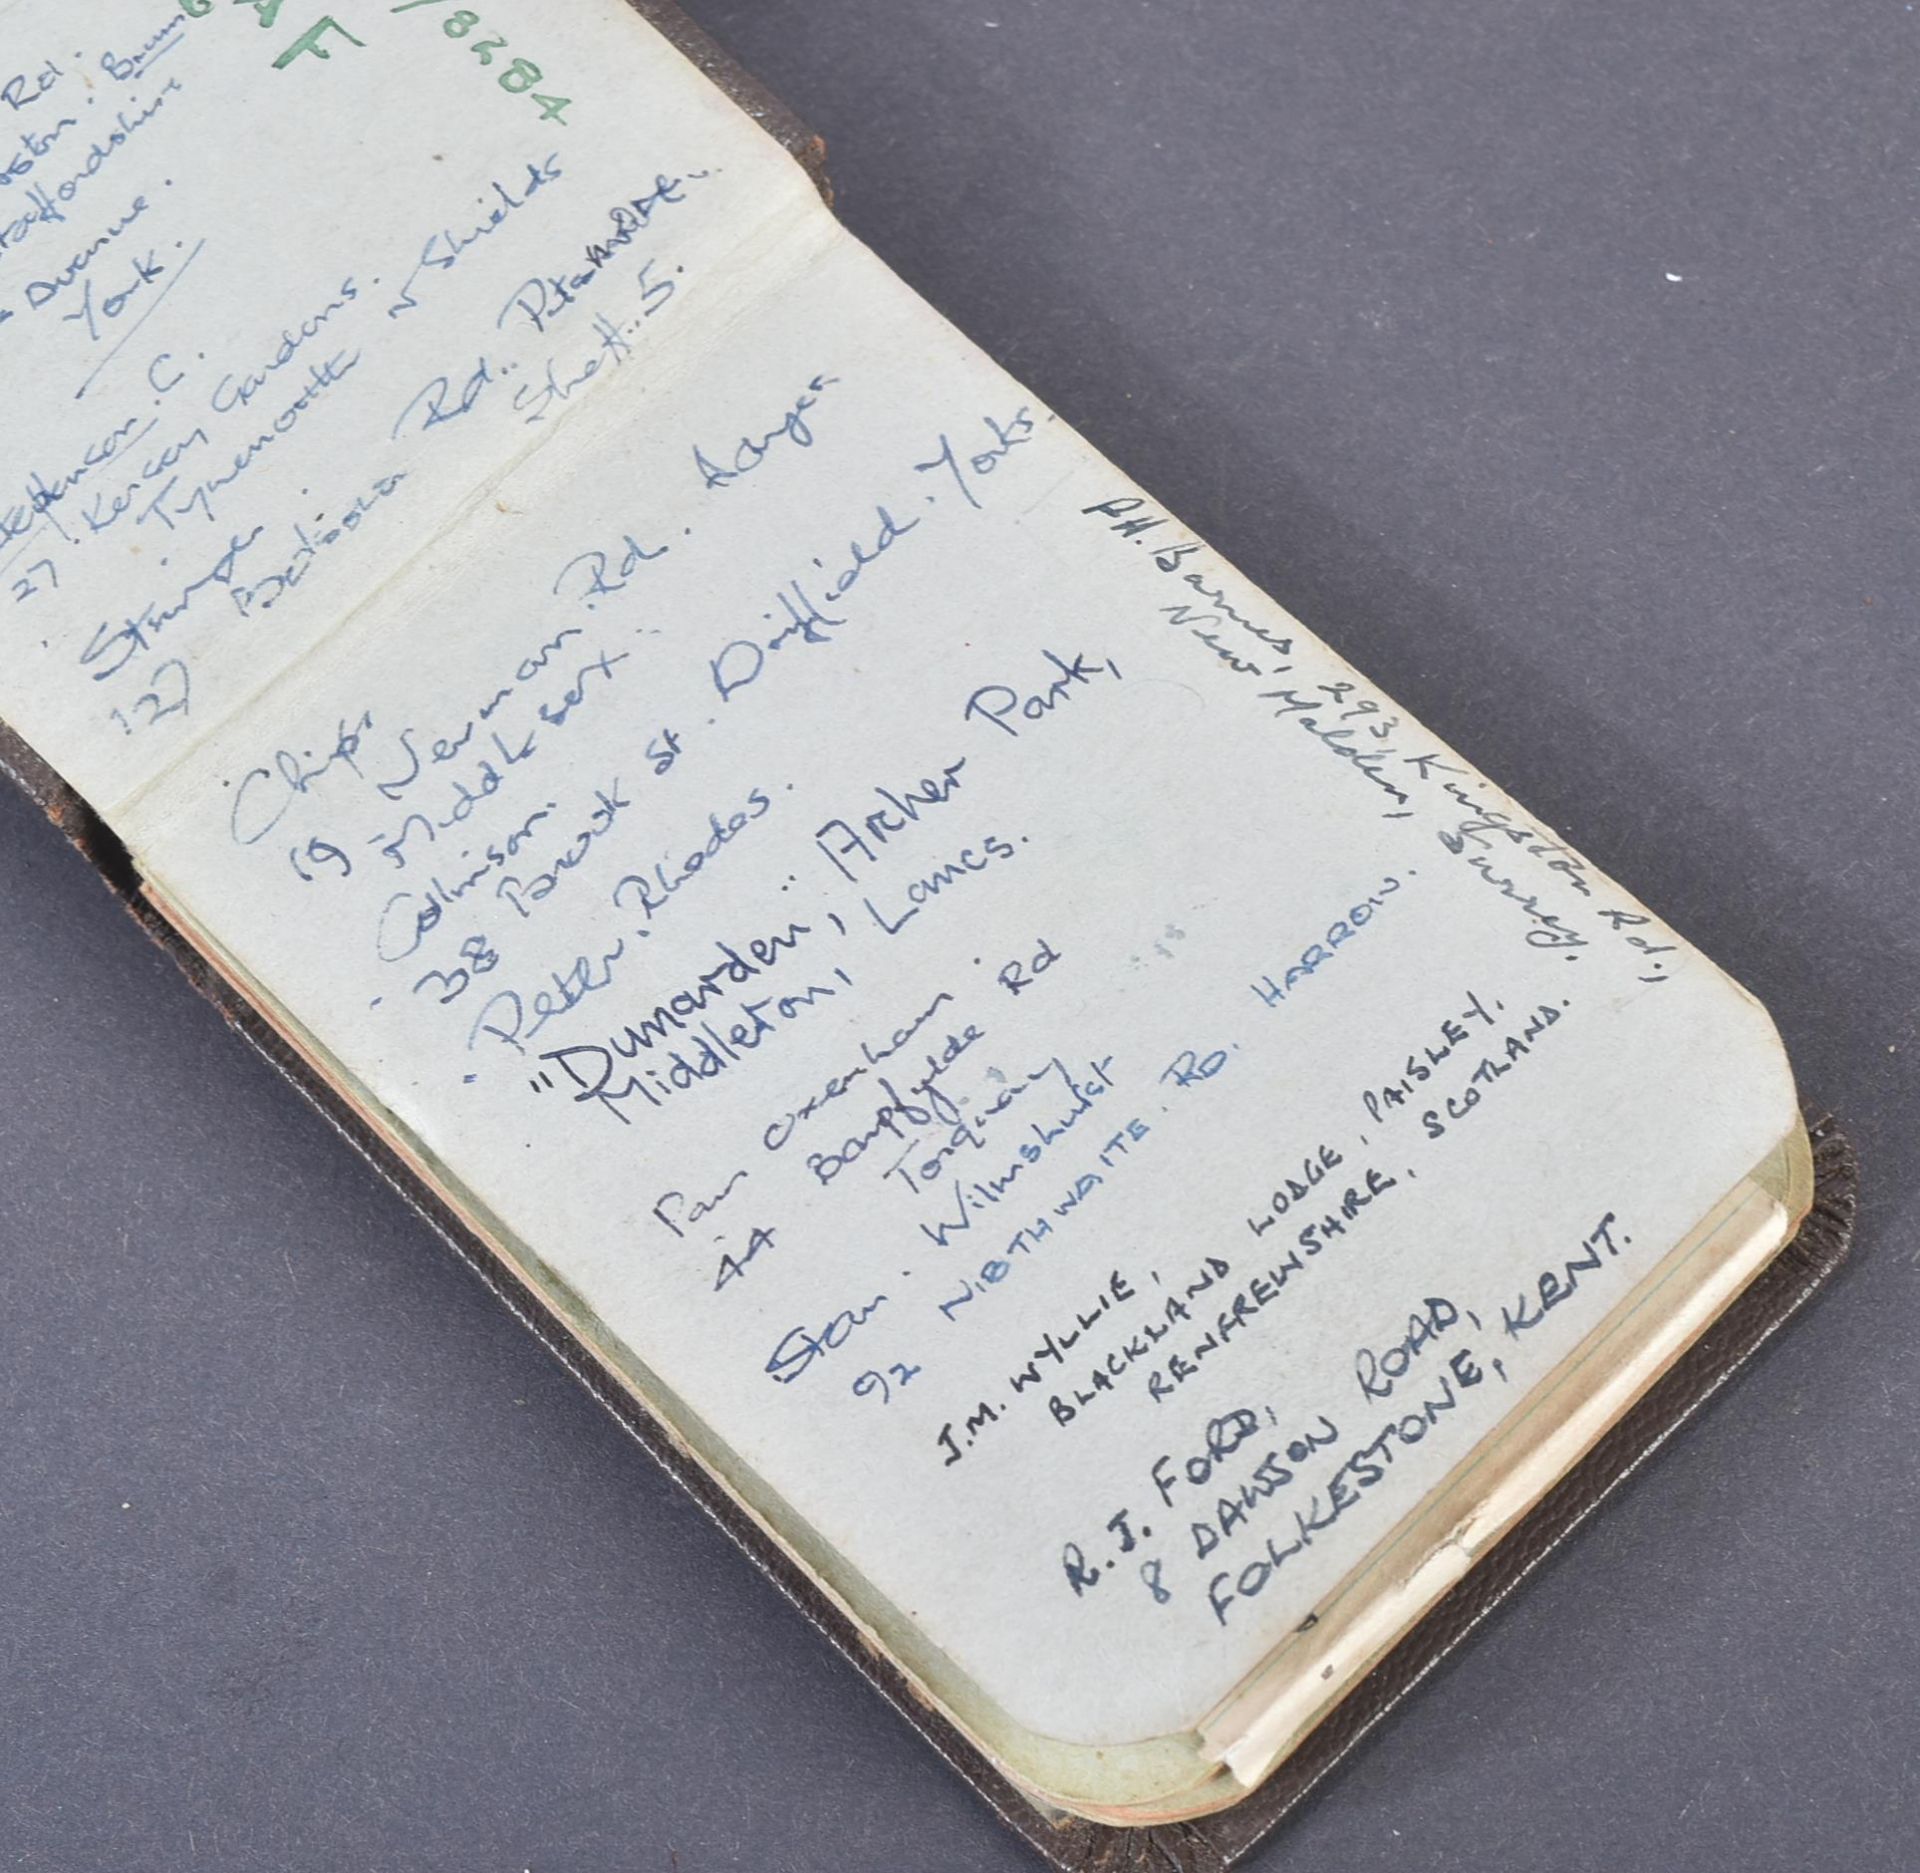 AF
8284
Rd.
Brum
Avenue.
York.
C.
27. Gardens.
Tynemouth N Shields
Stringer.
127 Rd..
Sheff..5.
Chips
19 Newman. Rd.
Middlesex.
Collinson.
38 Brook St. Driffield. Yorks.
Peter. Rhodes.
"Dunarden", Archer Park,
Middleton, Lancs.
Pam Oxenham.
44 Bampfylde Rd
Torquay
Stan. Wilmshurst
92 NIBTHWAITE. RD. HARROW.
J.M. WYLLIE,
BLACKLAND LODGE, PAISLEY.
RENFREWSHIRE, SCOTLAND.
R. J. FORD,
8 DAWSON ROAD,
FOLKESTONE, KENT.
P.H. Barnes, 293, Kingston Rd.,
New Malden, Surrey.